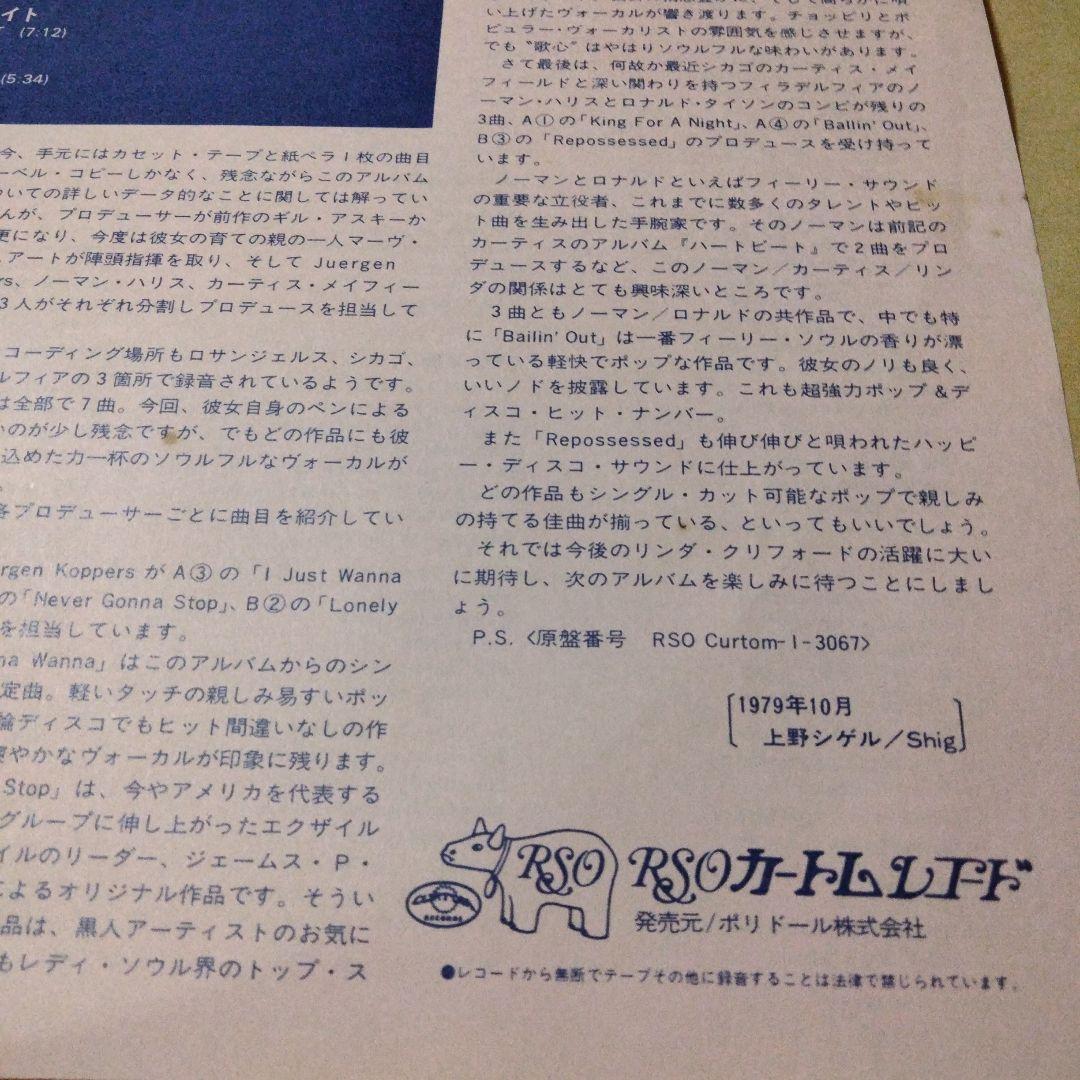 イト
(7:12)
(5:34)
今、手元にはカセット・テープと紙ペラ1枚の曲目
ーベル・コピーしかなく、残念ながらこのアルバム
ついての詳しいデータ的なことに関しては解ってい
んが、プロデューサーが前作のギル・アスキーか
更になり、今度は彼女の育ての親の一人マーヴ・
アートが陣頭指揮を取り、そして Juergen
rs、ノーマン・ハリス、カーティス・メイフィー
3人がそれぞれ分割しプロデュースを担当して
コーディング場所もロサンジェルス、シカゴ、
ルフィアの3箇所で録音されているようです。
は全部で7曲。今回、彼女自身のペンによる
いのが少し残念ですが、でもどの作品にも彼
込めた力一杯のソウルフルなヴォーカルが
。
各プロデューサーごとに曲目を紹介してい
rgen Koppers が A③の「I Just Wanna
の「Never Gonna Stop」、B②の「Lonely
を担当しています。
na Wanna」はこのアルバムからのシン
定曲。軽いタッチの親しみ易すいポッ
論ディスコでもヒット間違いなしの作
爽やかなヴォーカルが印象に残ります。
Stop」は、今やアメリカを代表する
グループに伸し上がったエクザイル
イルのリーダー、ジェームス・P・
によるオリジナル作品です。そうい
品は、黒人アーティストのお気に
もレディ・ソウル界のトップ・ス
い上げたヴォーカルが響き渡ります。チョッピリとポ
ピュラー・ヴォーカリストの雰囲気を感じさせますが、
でも“歌心”はやはりソウルフルな味わいがあります。
さて最後は、何故か最近シカゴのカーティス・メイ
フィールドと深い関わりを持つフィラデルフィアのノ
ーマン・ハリスとロナルド・タイソンのコンビが残りの
3曲、A①の「King For A Night」、A④の「Ballin' Out」、
B③の「Repossessed」のプロデュースを受け持って
います。
ノーマンとロナルドといえばフィーリー・サウンド
の重要な立役者、これまでに数多くのタレントやヒッ
ト曲を生み出した手腕家です。そのノーマンは前記の
カーティスのアルバム『ハートビート』で2曲をプロ
デュースするなど、このノーマン／カーティス／リン
ダの関係はとても興味深いところです。
3曲ともノーマン／ロナルドの共作品で、中でも特
に「Bailin' Out」は一番フィーリー・ソウルの香りが漂
っている軽快でポップな作品です。彼女のノリも良く、
いいノドを披露しています。これも超強力ポップ&デ
ィスコ・ヒット・ナンバー。
また「Repossessed」も伸び伸びと唄われたハッピ
ー・ディスコ・サウンドに仕上がっています。
どの作品もシングル・カット可能なポップで親しみ
の持てる佳曲が揃っている、といってもいいでしょう。
それでは今後のリンダ・クリフォードの活躍に大い
に期待し、次のアルバムを楽しみに待つことにしまし
ょう。
P.S.〈原盤番号 RSO Curtom-1-3067〉
1979年10月
上野シゲル／Shig
RSO
RECORDS
RSOカートムレコード
発売元/ポリドール株式会社
●レコードから無断でテープその他に録音することは法律で禁じられています。